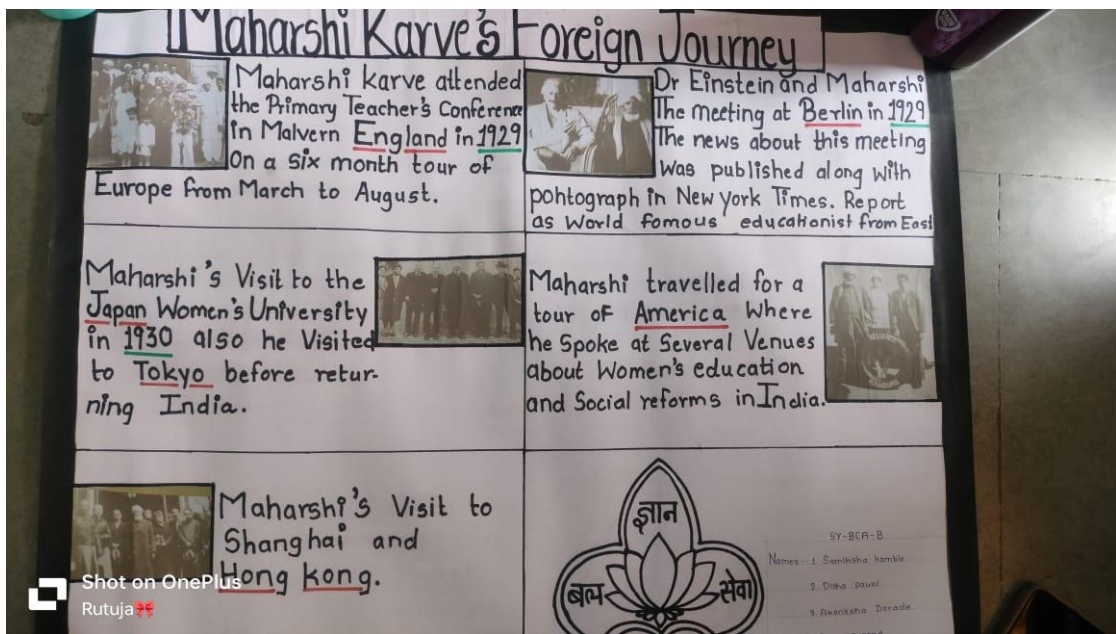 Maharshi Karve's Foreign Journey
Maharshi karve attended
the Primary Teacher's Conference
in Malvern England in 1929
On a six month tour of
Europe from March to August.
Dr Einstein and Maharshi
The meeting at Berlin in 1929
The news about this meeting
was published along with
pohtograph in New york Times. Report
as World fomous educationist from East
Maharshi's Visit to the
Japan Women's University
in 1930 also he Visited
to Tokyo before retur-
ning India.
Maharshi travelled for a
tour of America Where
he Spoke at Several Venues
about Women's education
and Social reforms in India.
Maharshi's Visit to
Shanghai and
Hong kong.
ज्ञान
बल सेवा
SY-BCA-B
Names :- 1. Samiksha kamble
2. Disha pawal
3. Akanksha Darade
Shot on OnePlus
Rutuja🎀